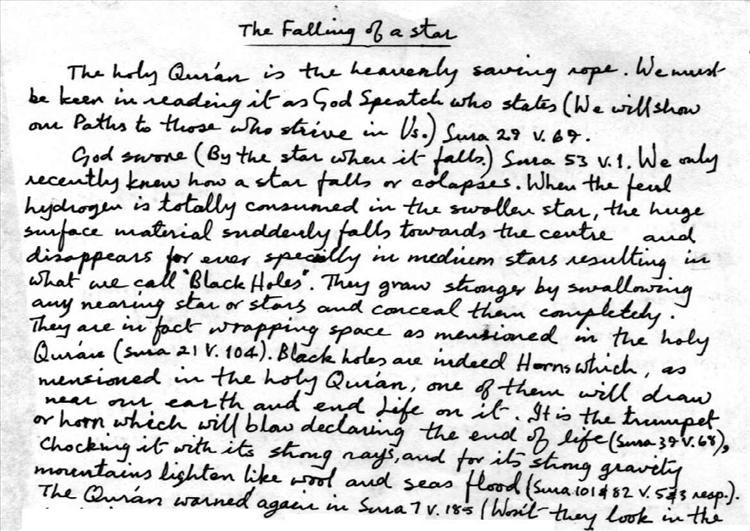 The Falling of a star
The holy Qurán is the heavenly saving rope. We must
be keen in reading it as God Speatch who states (We will show
our Paths to those who strive in Us.) Sura 29 v. 69.
God swore (By the star when it falls.) Sura 53 v.1. We only
recently knew how a star falls or colapses. When the feul
hydrogen is totally consumed in the swollen star, the huge
surface material suddenly falls towards the centre and
disappears for ever specially in medium stars resulting in
what we call "Black Holes". They grow stronger by swallowing
any nearing star or stars and conceal them completely.
They are in fact wrapping space as mentioned in the holy
Qurán (sura 21 V. 104). Black holes are indeed Horns which, as
mensioned in the holy Qurán, one of them will draw
near our earth and end Life on it. It is the trumpet
or horn which will blow declaring the end of life (Sura 39 V. 68),
chocking it with its strong rays, and for its strong gravity
mountains lighten like wool and seas flood (Sura.101&82 V. 5&3 resp.).
The Qurán warned again in Sura 7 V. 185 (Wosit they look in the